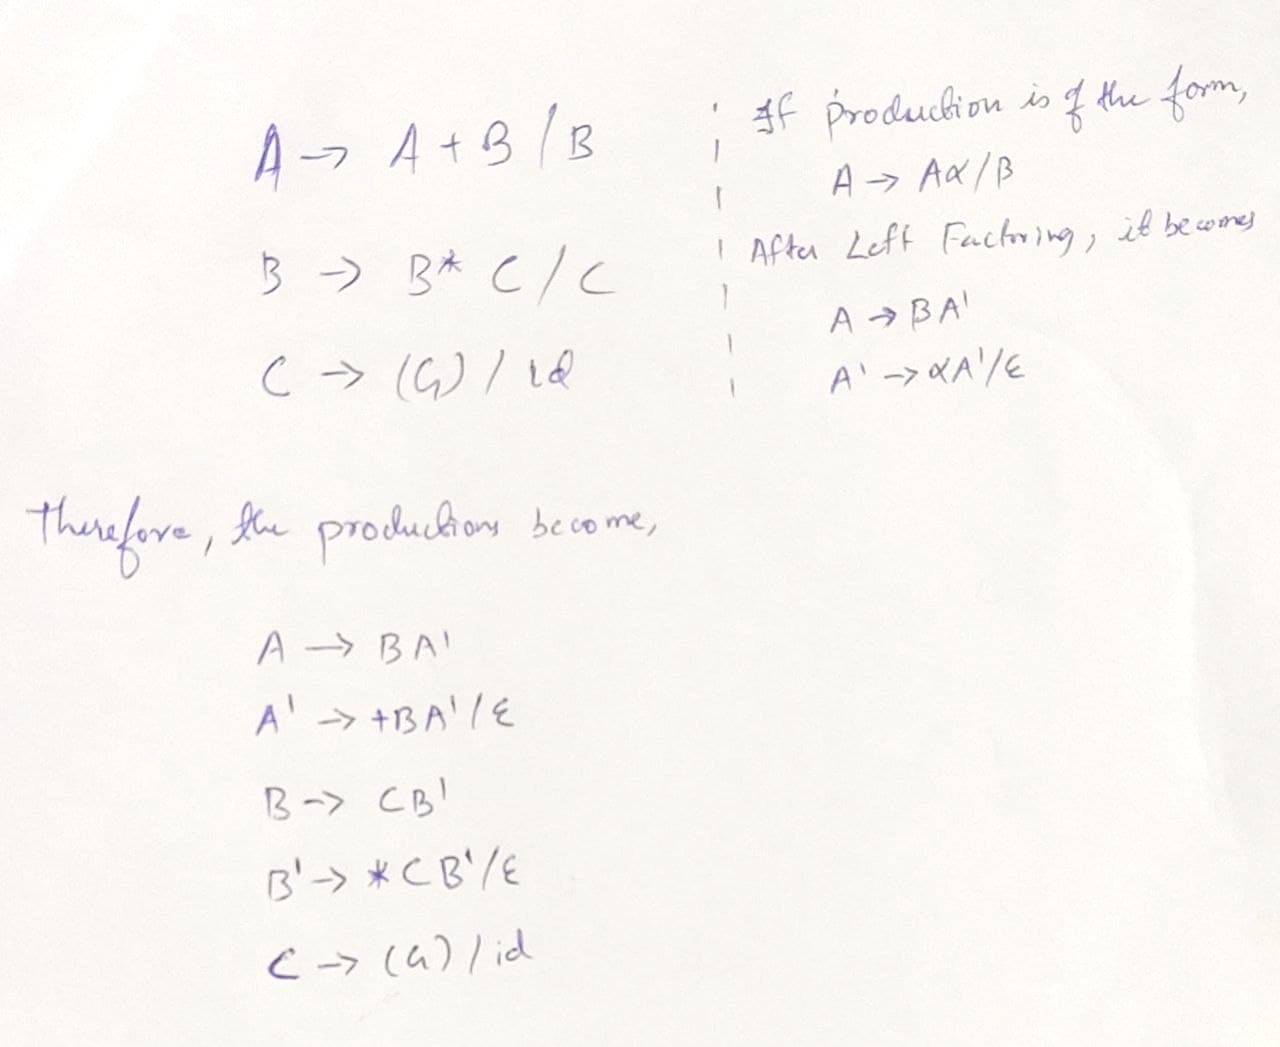 A → A + B / B
B → B* C / C
C → (G) / id
If production is of the form,
A → Aα/β
After Left Factoring, it becomes
A → βA'
A' → αA'/ε
Therefore, the productions become,
A → BA'
A' → +BA'/ε
B → CB'
B' → *CB'/ε
C → (G) / id